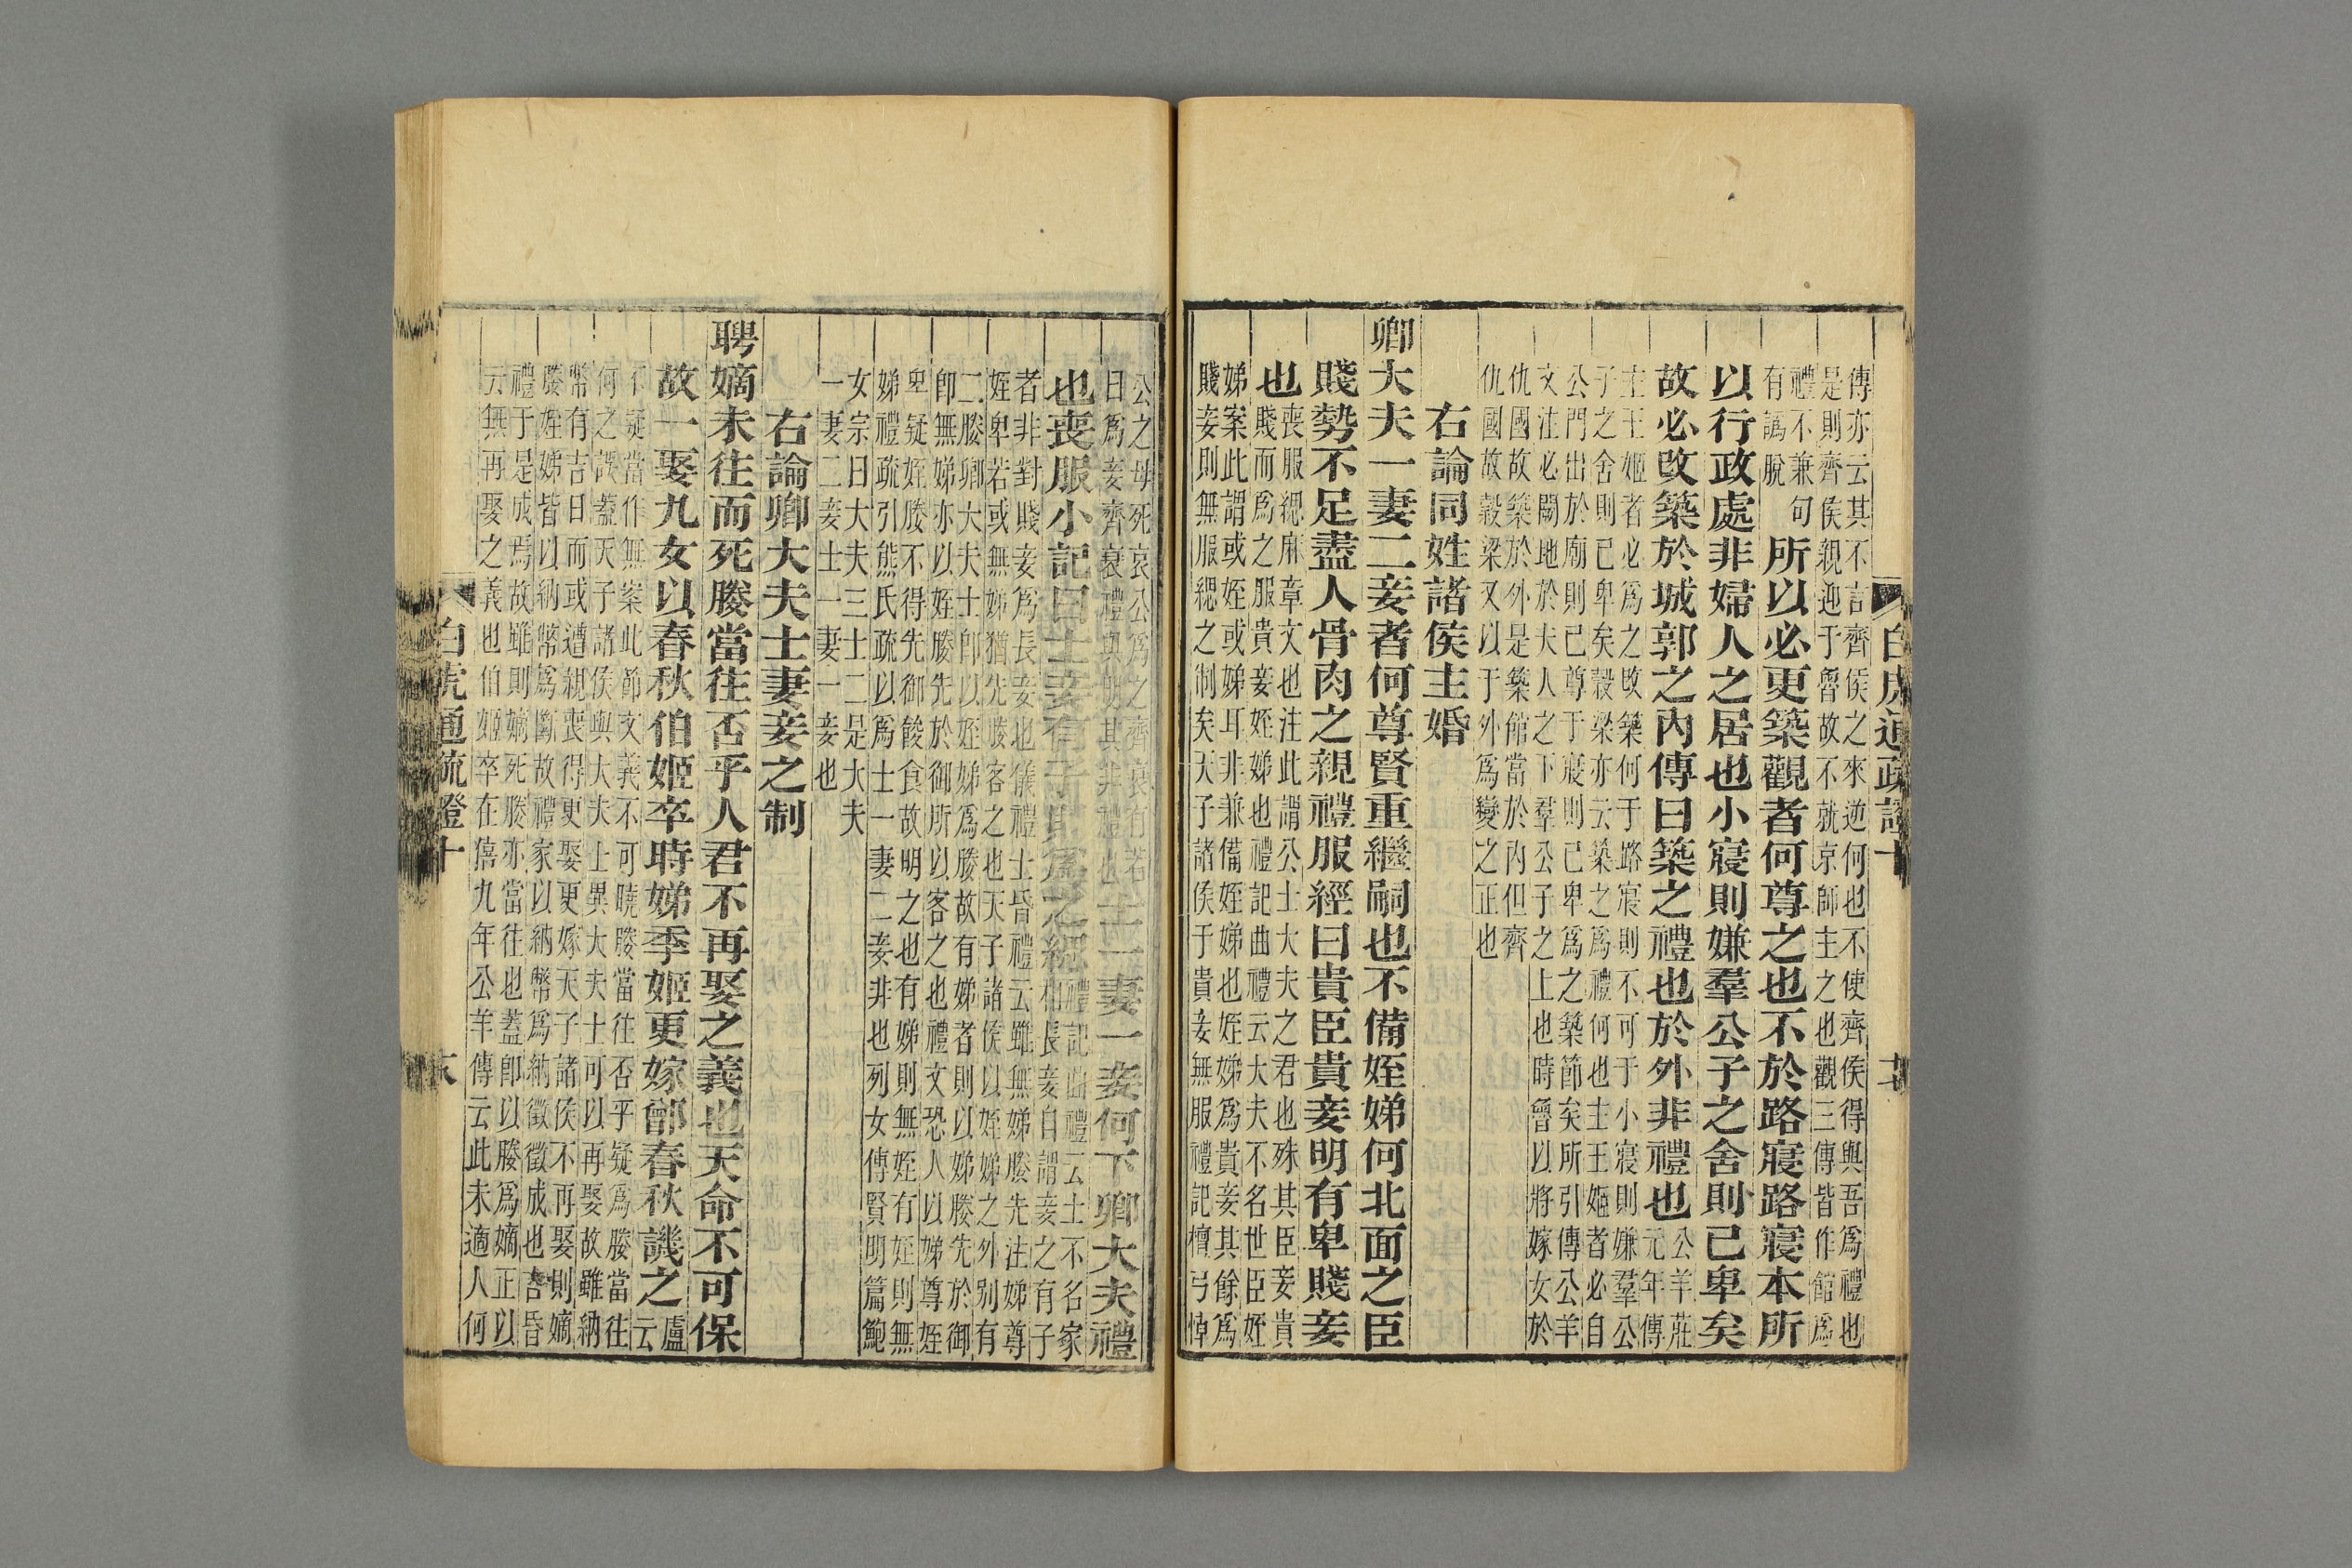 傳亦云其不言齊侯之來逆何也不使齊侯得與吾爲禮也
是則齊侯親迎于魯故不就京師主之也觀三傳皆作館爲
禮不兼句
有譌脫
所以必更築觀者何尊之也不於路寢路寢本所
以行政處非婦人之居也小寢則嫌羣公子之舍則已卑矣
故必改築於城郭之內傳曰築之禮也於外非禮也
公羊莊
元年傳
主王姬者必爲之改築何于路寢則不可于小寢則嫌羣公
子之舍則已卑矣穀梁亦云築之爲禮何也主王姬者必自
公門出於廟則已尊于寢則已卑爲之築節矣所引傳公羊
文注必闕地於夫人之下羣公子之上也時魯以將嫁女於
仇國故築於外是築館當於內但齊
仇國故穀梁又以于外爲變之正也
右論同姓諸侯主婚
卿大夫一妻二妾者何尊賢重繼嗣也不備姪娣何北面之臣
賤勢不足盡人骨肉之親禮服經曰貴臣貴妾明有卑賤妾
也
喪服緦麻章文也注此謂公士大夫之君也殊其臣妾貴
賤而爲之服貴妾姪娣也禮記曲禮云大夫不名世臣姪
娣案此謂或姪或娣耳非兼備姪娣也姪娣爲貴妾其餘爲
賤妾則無服緦之制矣天子諸侯于貴妾無服禮記檀弓悼
白虎通疏證十
公之母死哀公爲之齊衰有若
曰爲妾齊衰禮與明其非禮也
士一妻一妾何下卿大夫禮
也喪服小記曰士妾有子則爲之緦
禮記曲禮云士不名家
相長妾自謂妾之有子
者非對賤妾爲長妾也儀禮士昏禮云雖無娣媵先注娣尊
姪卑若或無娣猶先媵客之也天子諸侯以姪娣之外别有
二媵卿大夫士卽以姪娣爲媵故有娣者則以娣媵先於御
卽無娣亦以姪媵先於御所以客之也禮文恐人以娣尊姪
卑疑姪媵不得先御餕食故明之也有娣則無姪有姪則無
娣禮疏引熊氏疏以爲士一妻二妾非也列女傳賢明篇鮑
女宗曰大夫三士二是大夫
一妻二妾士一妻一妾也
右論卿大夫士妻妾之制
聘嫡未往而死媵當往否乎人君不再娶之義也天命不可保
故一娶九女以春秋伯姬卒時娣季姬更嫁鄫春秋譏之
盧
云
不疑當作無案此節文義不可曉媵當往否乎疑爲媵當往
何之誤蓋天子諸侯與大夫士異大夫士可以再娶故雖納
幣有吉日而或遭親喪得更娶更嫁天子諸侯不再娶則嫡
媵姪娣皆以納幣爲斷故禮家以納幣爲納徵徵成也言昏
禮于是成焉故雖則嫡死媵亦當往也蓋卽以媵爲嫡正以
云無再娶之義也伯姬卒在僖九年公羊傳云此未適人何
白虎通疏證十